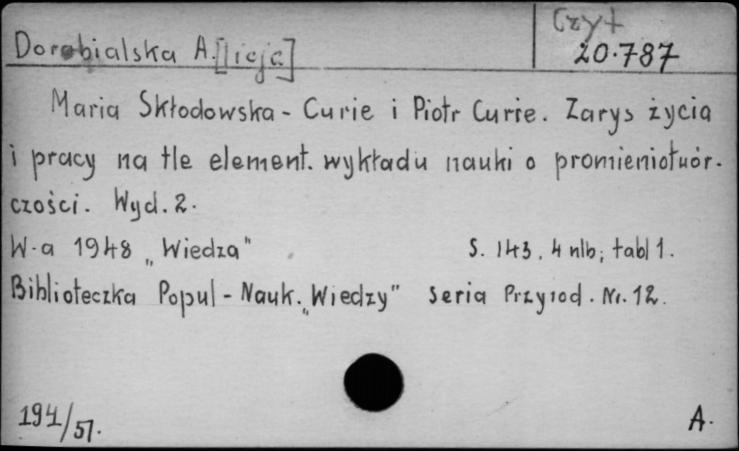 Czyt
20.787
Dorabialska A.[licja]
Maria Skłodowska - Curie i Piotr Curie. Zarys życia
i pracy na tle element. wykładu nauki o promieniotwór-
czości. Wyd. 2.
W-a 1948 „Wiedza" S. 143, 4 nlb; tabl 1.
Biblioteczka Popul - Nauk. „Wiedzy" Seria Przyrod. Nr. 12.
194/51.
A.